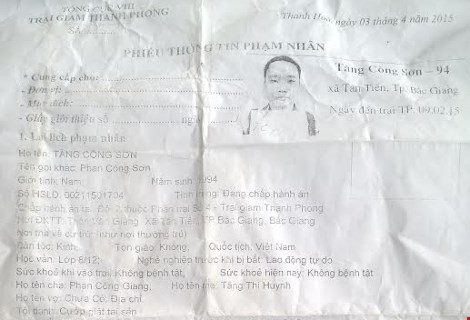 TỔNG CỤC VIII
TRẠI GIAM THANH PHONG
Thanh Hoá, ngày 03 tháng 4 năm 2015
PHIẾU THÔNG TIN PHẠM NHÂN
* Cung cấp cho:
- Đơn vị:
- Mục đích:
- Giấy giới thiệu số ngày
Tăng Công Sơn – 94
xã Tân Tiến, Tp. Bắc Giang
Ngày đến trại TP: 09.02.15
1. Lai lịch phạm nhân
Họ tên: TĂNG CÔNG SƠN
Tên gọi khác: Phan Công Sơn
Giới tính: Nam, Năm sinh: 1994
Số HSLQ: 00211501704 Tình trạng: Đang chấp hành án
Chấp hành án tại: Đội 2, thuộc Phân trại Số 4 - Trại giam Thanh Phong
Nơi ĐKTT: Giang Xã Tân Tiến, TP Bắc Giang, Bắc Giang
Nơi thứ và cư trú: (như nơi thường trú)
Dân tộc: Kinh, Tôn giáo: Không, Quốc tịch: Việt Nam
Học vấn: Lớp 8/12, Nghề nghiệp trước khi bị bắt: Lao động tự do
Sức khoẻ khi vào trại: Không bệnh tật, Sức khoẻ hiện nay: Không bệnh tật,
Họ tên cha: Phan Công Giang, Họ tên mẹ: Tăng Thị Huynh
Họ tên vợ: Chưa Có, Địa chỉ
Tội danh: Cướp giật tài sản